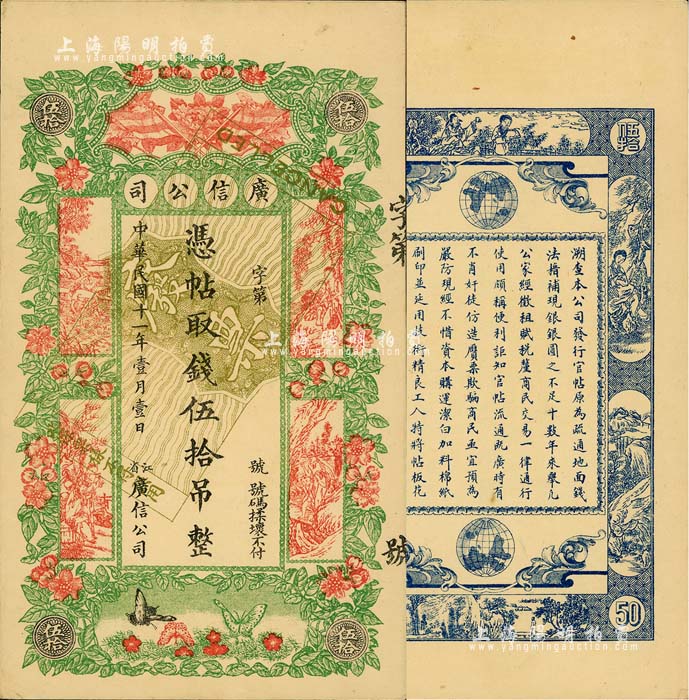 上海陽明拍賣
www.yangmingauction.com
伍拾
伍拾
廣信公司
字第
號 號碼揉壞不付
憑帖取錢伍拾吊整
中華民國十一年壹月壹日
江省廣信公司
CANCELLED
伍拾
伍拾
上海陽明拍賣
www.yangmingauction.com
字第
號
伍拾
溯查本公司發行官帖原為疏通地面錢
法揩補現銀銀圓之不足十數年來舉凡
公家經徵租賦稅釐商民交易一律通行
使用頗稱便利詎知官帖流通既廣時有
不肖奸徒仿造贋票欺騙商民亟宜預為
嚴防現經不惜資本購運潔白加料棉紙
刷印並延用技術精良工人特將帖板花
50
上海陽明拍賣
www.yangmingauction.com